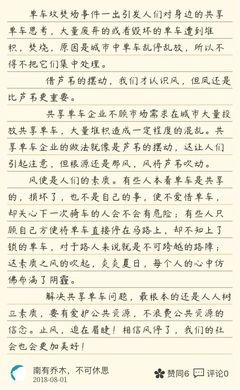 单车坟焚场事件一出引发人们对身边的共享
单车思考，大量废弃的或看毁坏的单车遭到堆
积，焚烧，原因是城市中单车乱停乱放，所以不
得不把它们集中处理。
借芦苇的摆动，我们才认识风，但风还是
比芦苇更重要。
共享单车企业不顾市场需求在城市大量投
放共享单车，大量堆积造成一定程度的混乱。共
享单车企业的做法就像是芦苇的摆动，这让人们
引起注意，但根源还是那风，风将芦苇吹动。
风便是人们的素质。有些人本看单车是共享
的，损坏了，也不是自己的事，使不爱惜单车，
却关心下一次骑车的人会不会有危险；有些人只
顾自己方便将单车直接停在马路上，却不知上了
锁的单车，对于路人来说就是不可跨越的路障；
这素质之风的吹起，炎炎夏日，每个人的心中仿
佛布满了阴霾。
解决共享单车问题，最根本的还是人人树
立素质，要有爱护公共资源，不浪费公共资源的
信念。止风，迫在眉睫！相信风停了，我们的社
会也会更加美好！
南有乔木，不可休思
2018-08-01
赞同6 评论0